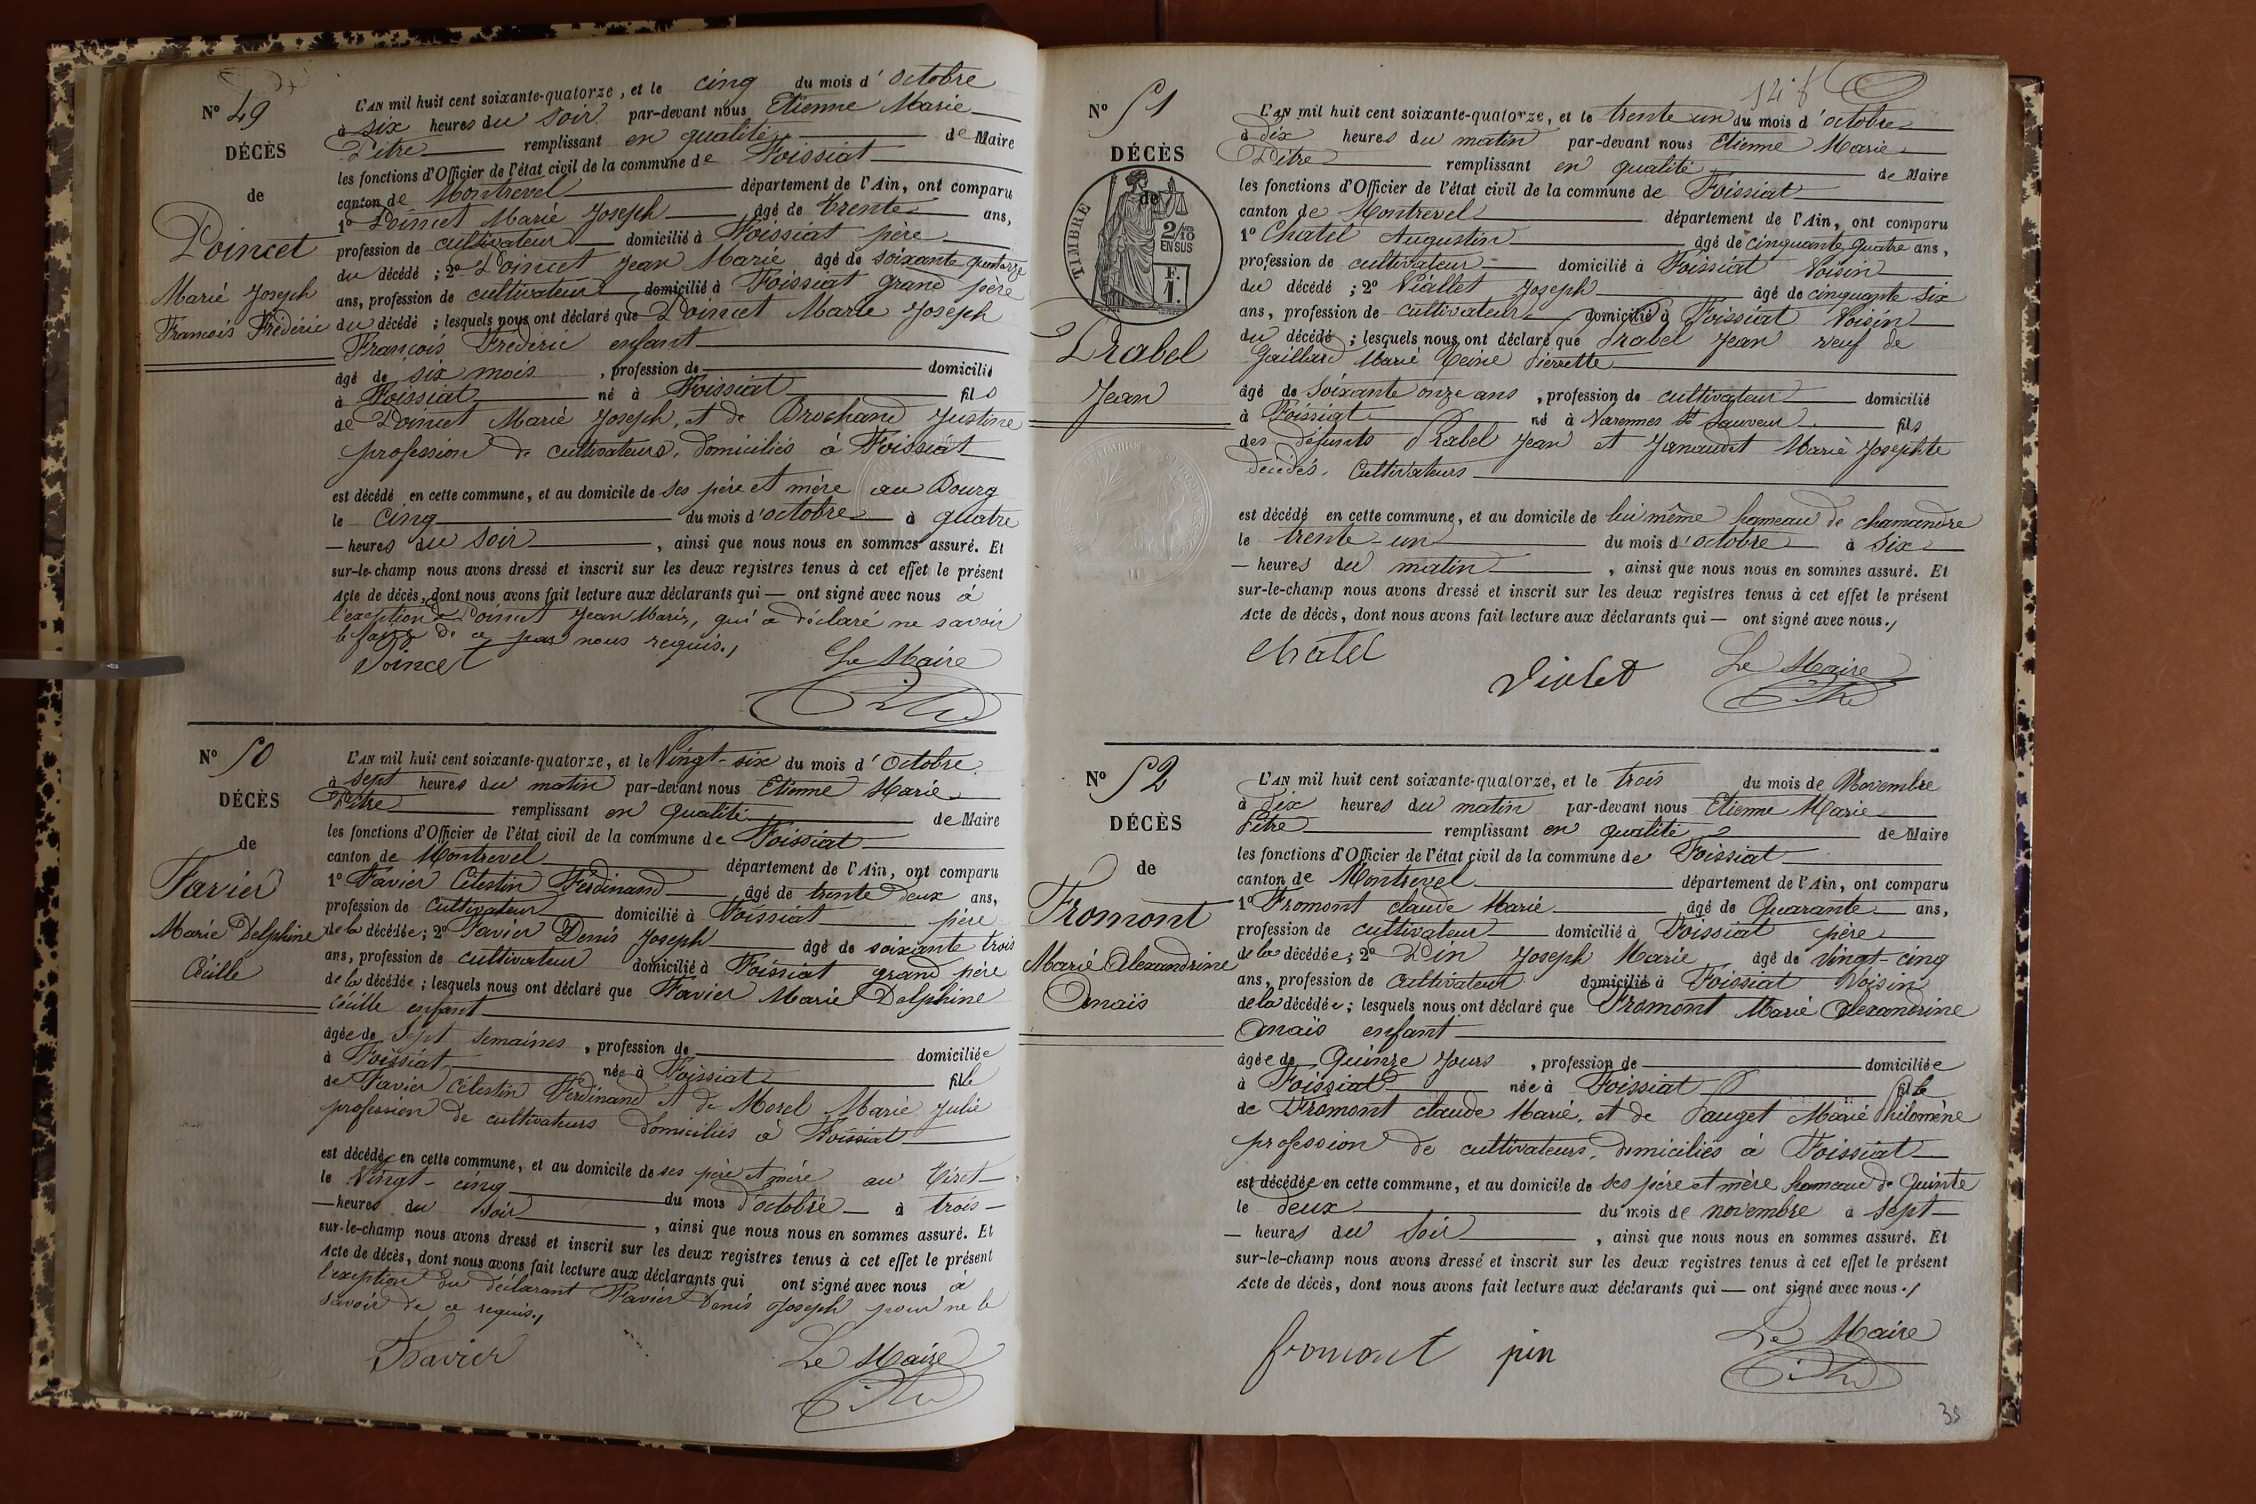 N° 49
DÉCÈS
de
Poincet
Marie Joseph
François Frédéric
L'AN mil huit cent soixante-quatorze, et le cinq du mois d'octobre
à six heures du soir par-devant nous Etienne Marie
Pitre remplissant en qualité de Maire
les fonctions d'Officier de l'état civil de la commune de Foissiat
canton de Montrevel département de l'Ain, ont comparu
1° Poincet Marie Joseph âgé de trente ans,
profession de cultivateur domicilié à Foissiat père
du décédé ; 2° Poincet Jean Marie âgé de soixante quatorze
ans, profession de cultivateur domicilié à Foissiat grand père
du décédé ; lesquels nous ont déclaré que Poincet Marie Joseph
François Frédéric enfant
âgé de six mois , profession de domicilié
à Foissiat né à Foissiat fils
de Poincet Marie Joseph, et de Brochand Justine
profession de cultivateurs, domiciliés à Foissiat
est décédé en cette commune, et au domicile de ses père et mère au Bourg
le cinq du mois d'octobre à quatre
— heures du soir , ainsi que nous nous en sommes assuré. Et
sur-le-champ nous avons dressé et inscrit sur les deux registres tenus à cet effet le présent
Acte de décès, dont nous avons fait lecture aux déclarants qui — ont signé avec nous à
l'exception de Poincet Jean Marie, qui a déclaré ne savoir
le faire de ce par nous requis./
Poincet Le Maire
Pitre
N° 50
DÉCÈS
de
Favier
Marie Delphine
Cécille
L'AN mil huit cent soixante-quatorze, et le Vingt-six du mois d'octobre
à sept heures du matin par-devant nous Etienne Marie
Pitre remplissant en qualité de Maire
les fonctions d'Officier de l'état civil de la commune de Foissiat
canton de Montrevel département de l'Ain, ont comparu
1° Favier Célestin Ferdinand âgé de trente deux ans,
profession de cultivateur domicilié à Foissiat père
de la décédée ; 2° Favier Denis Joseph âgé de soixante trois
ans, profession de cultivateur domicilié à Foissiat grand père
de la décédée ; lesquels nous ont déclaré que Favier Marie Delphine
Cécille enfant
âgée de sept semaines , profession de domiciliée
à Foissiat née à Foissiat fille
de Favier Célestin Ferdinand et de Morel Marie Julie
profession de cultivateurs domiciliés à Foissiat
est décédée en cette commune, et au domicile de ses père et mère au Tiret
le Vingt-cinq du mois d'octobre à trois
— heures du soir , ainsi que nous nous en sommes assuré. Et
sur-le-champ nous avons dressé et inscrit sur les deux registres tenus à cet effet le présent
Acte de décès, dont nous avons fait lecture aux déclarants qui ont signé avec nous à
l'exception du déclarant Favier Denis Joseph pour ne le
savoir de ce requis./
Favier Le Maire
Pitre
N° 51
DÉCÈS
de
TIMBRE
2/10 EN SUS
F. 1.
Prabel
Jean
L'AN mil huit cent soixante-quatorze, et le trente un du mois d'octobre
à dix heures du matin par-devant nous Etienne Marie
Pitre remplissant en qualité de Maire
les fonctions d'Officier de l'état civil de la commune de Foissiat
canton de Montrevel département de l'Ain, ont comparu
1° Chatel Augustin âgé de cinquante quatre ans,
profession de cultivateur domicilié à Foissiat Voisin
du décédé ; 2° Viallet Joseph âgé de cinquante six
ans, profession de cultivateur domicilié à Foissiat Voisin
du décédé ; lesquels nous ont déclaré que Prabel Jean veuf de
Gaillard Marie Reine Pierrette
âgé de soixante onze ans , profession de cultivateur domicilié
à Foissiat né à Varennes St Sauveur fils
des défunts Prabel Jean et Janaudet Marie Josephte
décédés, cultivateurs
est décédé en cette commune, et au domicile de lui même hameau de chamandre
le trente-un du mois d'octobre à six
— heures du matin , ainsi que nous nous en sommes assuré. Et
sur-le-champ nous avons dressé et inscrit sur les deux registres tenus à cet effet le présent
Acte de décès, dont nous avons fait lecture aux déclarants qui — ont signé avec nous./
Chatel Violet Le Maire
Pitre
N° 52
DÉCÈS
de
Fromont
Marie Alexandrine
Anaïs
L'AN mil huit cent soixante-quatorze, et le trois du mois de Novembre
à dix heures du matin par-devant nous Etienne Marie
Pitre remplissant en qualité de Maire
les fonctions d'Officier de l'état civil de la commune de Foissiat
canton de Montrevel département de l'Ain, ont comparu
1° Fromont claude Marie âgé de Quarante ans,
profession de cultivateur domicilié à Foissiat père
de la décédée ; 2° Pin Joseph Marie âgé de vingt-cinq
ans, profession de cultivateur domicilié à Foissiat Voisin
de la décédée ; lesquels nous ont déclaré que Fromont Marie Alexandrine
Anaïs enfant
âgée de Quinze Jours , profession de domiciliée
à Foissiat née à Foissiat fille
de Fromont claude Marie, et de Pauget Marie Philomène
profession de cultivateurs, domiciliés à Foissiat
est décédée en cette commune, et au domicile de ses père et mère hameau de Quinte
le deux du mois de novembre à sept
— heures du soir , ainsi que nous nous en sommes assuré. Et
sur-le-champ nous avons dressé et inscrit sur les deux registres tenus à cet effet le présent
Acte de décès, dont nous avons fait lecture aux déclarants qui — ont signé avec nous./
fromont pin Le Maire
Pitre
38